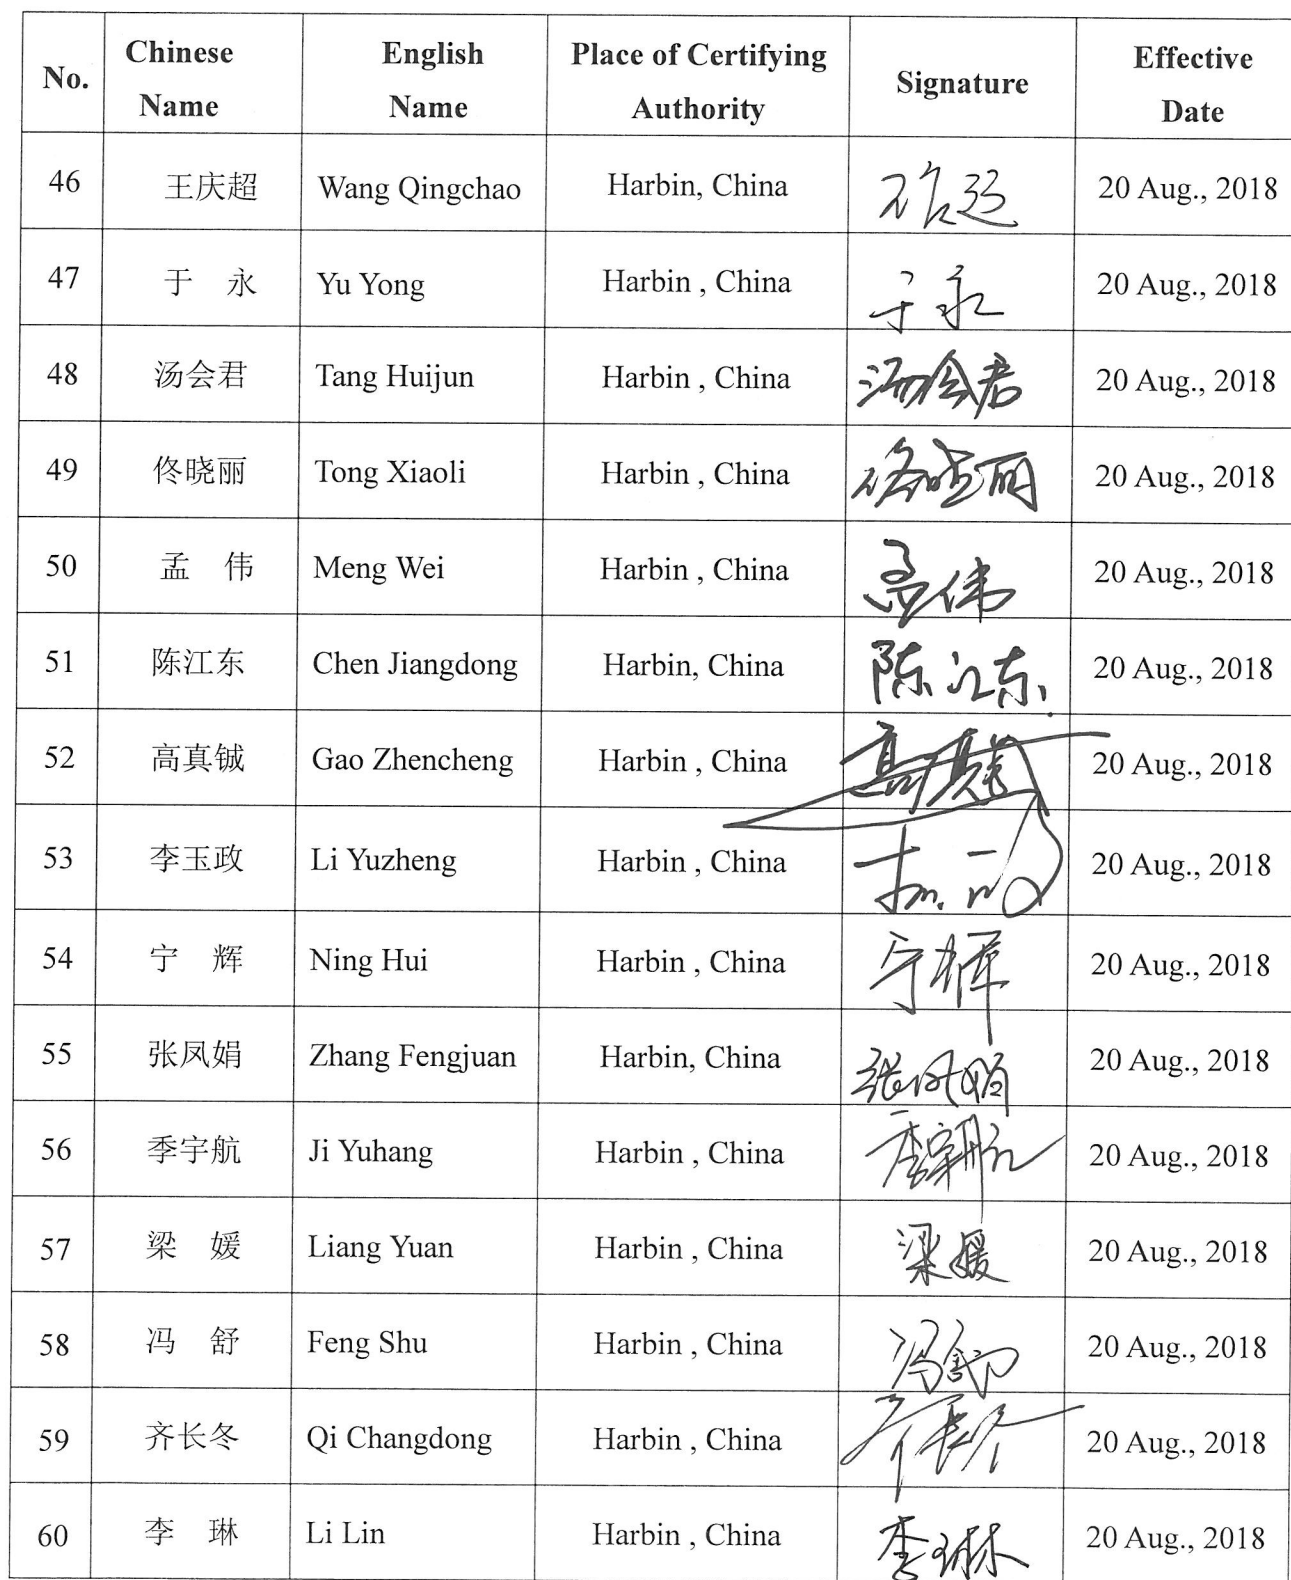 No. Chinese Name English Name Place of Certifying Authority Signature Effective Date
46 王庆超 Wang Qingchao Harbin, China 20 Aug., 2018
47 于 永 Yu Yong Harbin , China 于永 20 Aug., 2018
48 汤会君 Tang Huijun Harbin , China 汤会君 20 Aug., 2018
49 佟晓丽 Tong Xiaoli Harbin , China 佟晓丽 20 Aug., 2018
50 孟 伟 Meng Wei Harbin , China 孟伟 20 Aug., 2018
51 陈江东 Chen Jiangdong Harbin, China 陈江东 20 Aug., 2018
52 高真铖 Gao Zhencheng Harbin , China 20 Aug., 2018
53 李玉政 Li Yuzheng Harbin , China 20 Aug., 2018
54 宁 辉 Ning Hui Harbin , China 宁辉 20 Aug., 2018
55 张凤娟 Zhang Fengjuan Harbin, China 张凤娟 20 Aug., 2018
56 季宇航 Ji Yuhang Harbin , China 季宇航 20 Aug., 2018
57 梁 媛 Liang Yuan Harbin , China 梁媛 20 Aug., 2018
58 冯 舒 Feng Shu Harbin , China 冯舒 20 Aug., 2018
59 齐长冬 Qi Changdong Harbin , China 齐长冬 20 Aug., 2018
60 李 琳 Li Lin Harbin , China 李琳 20 Aug., 2018